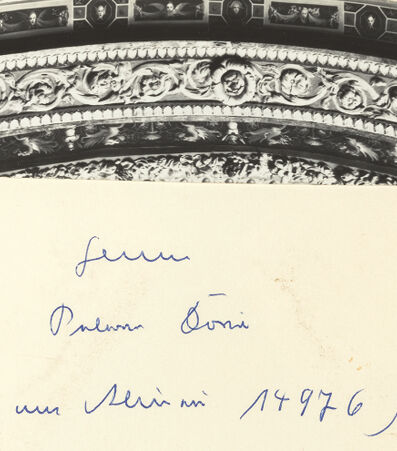 Genua
Palazzo Doria
Alinari 14976)